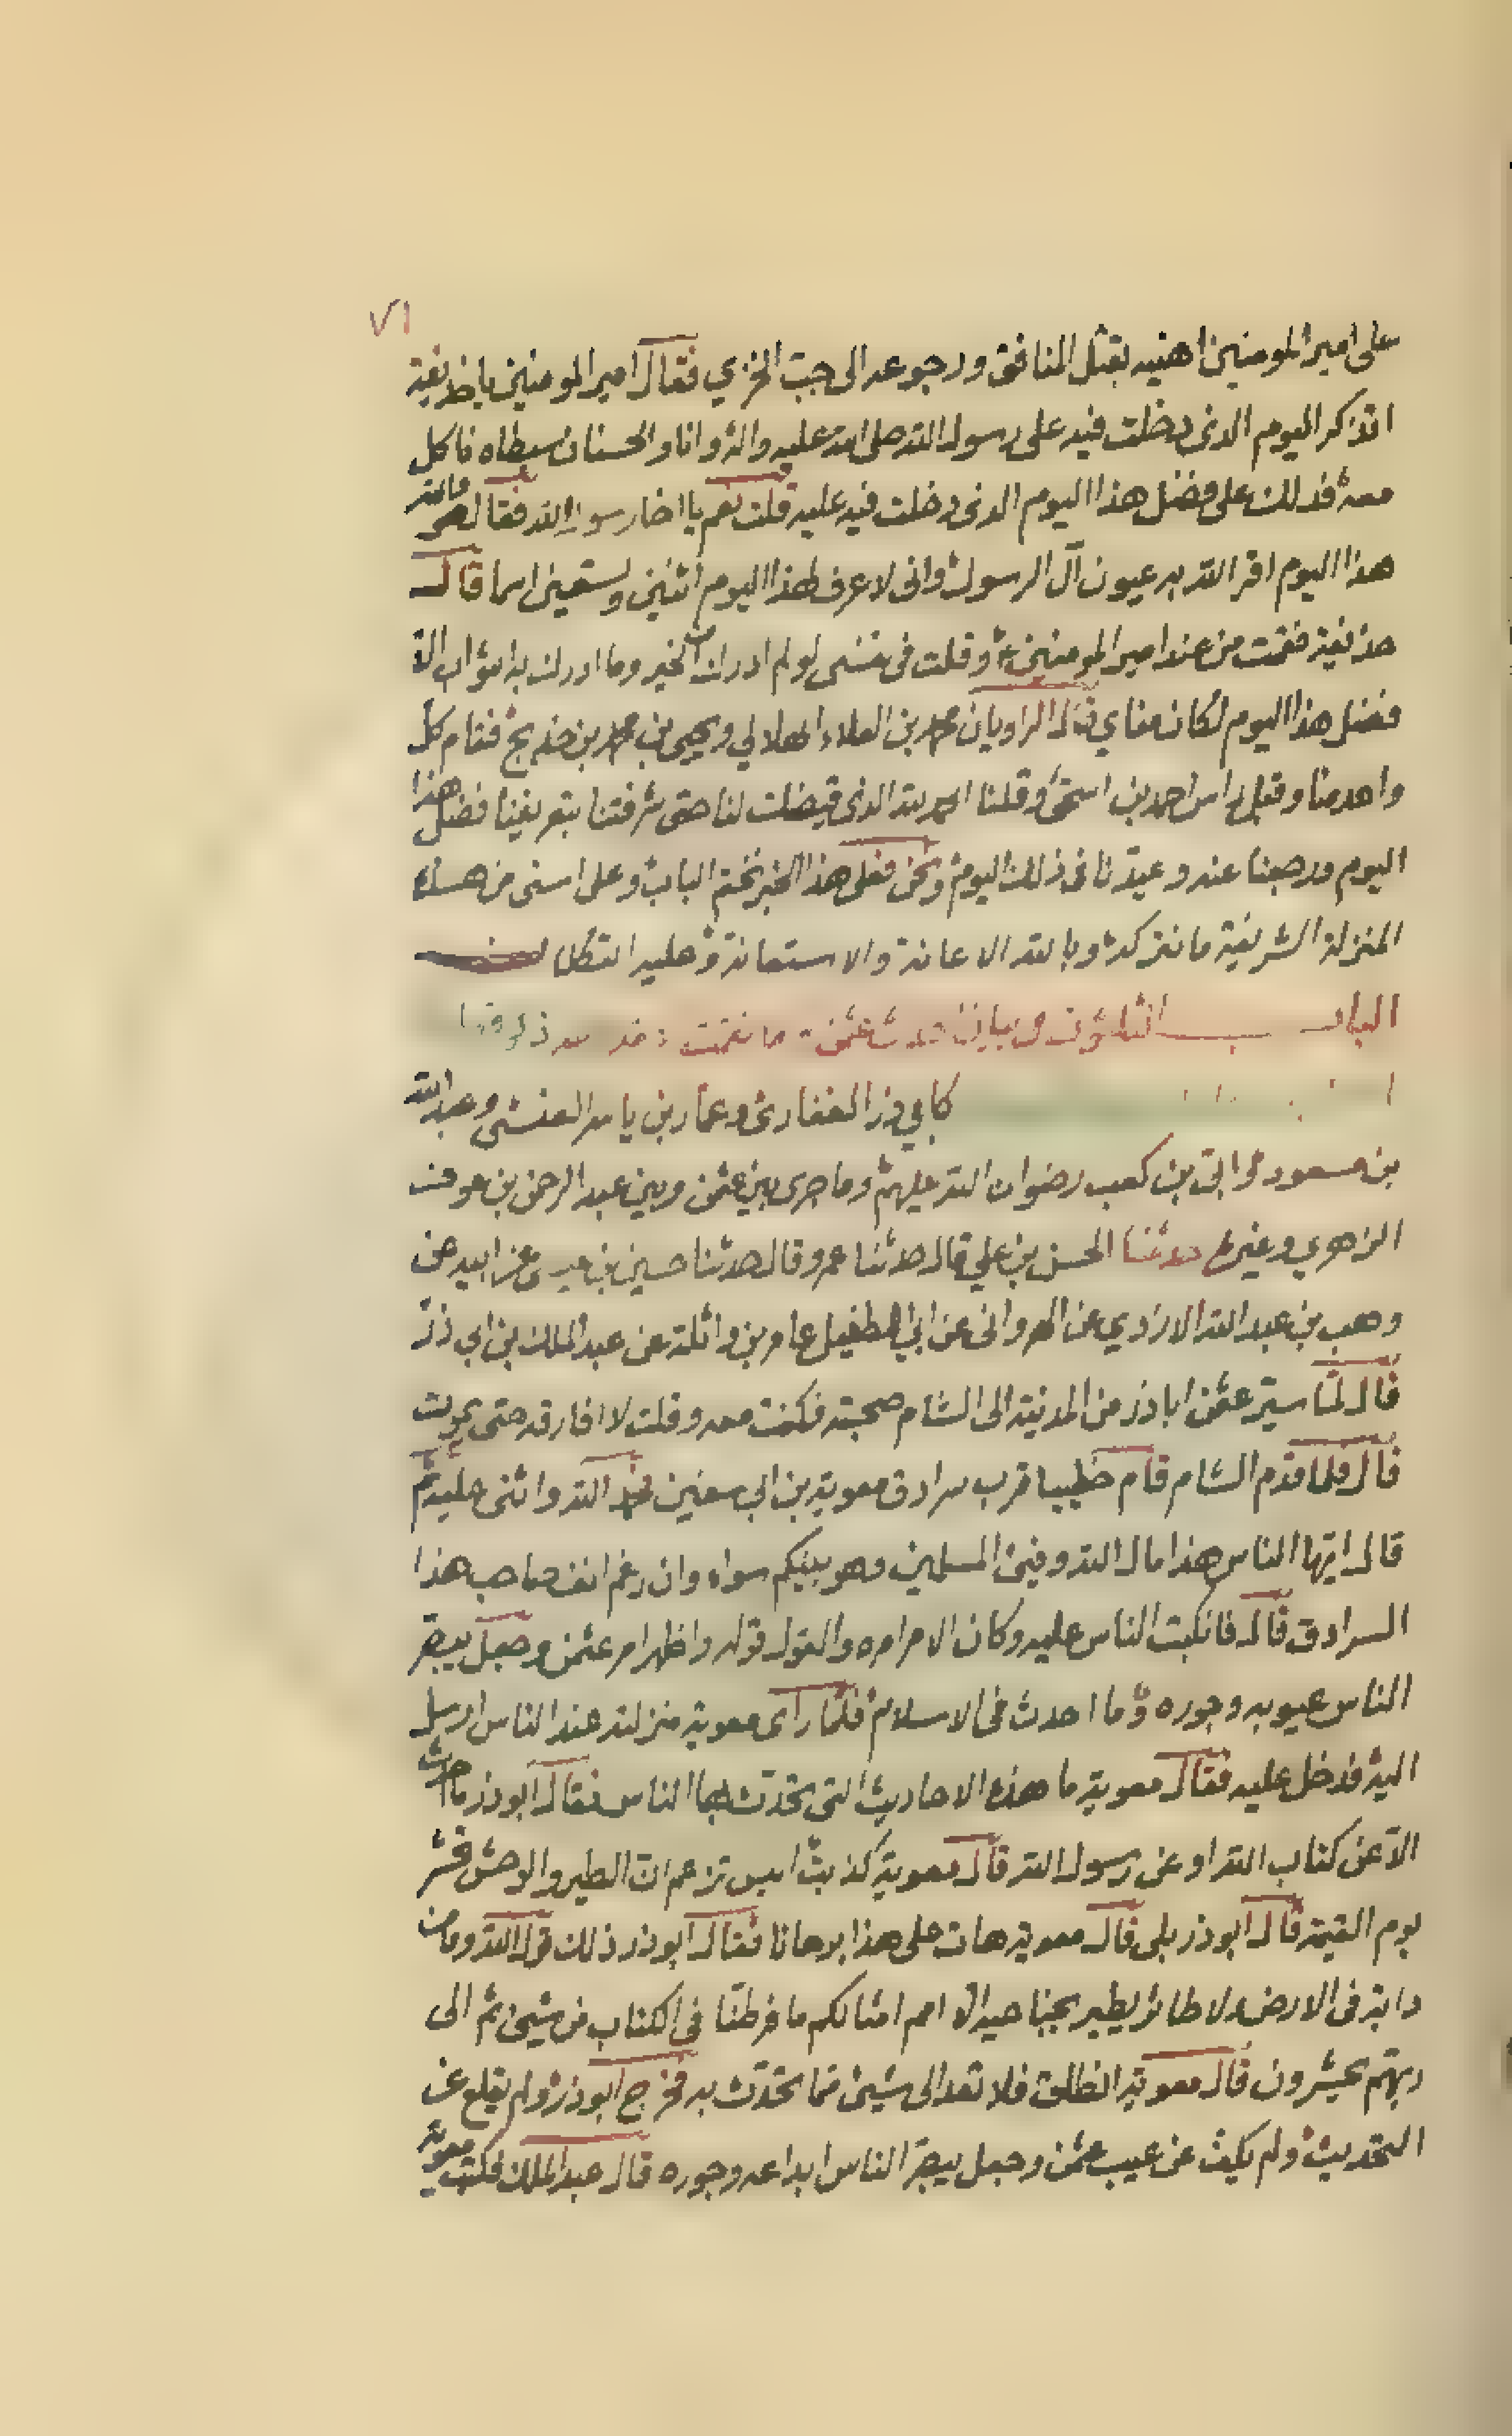 ٧١
على امير المومنين اهنيه بقتل المنافق ورجوعه الى فقال امير المومنين يا حذيفة
اتذكر اليوم الذي دخلت فيه على رسول الله صلى الله عليه واله وانا والحسنان سبطاه ناكل
معه فدلك على فضل هذا اليوم الذي دخلت فيه عليه قلت نعم يا اخا رسول الله فقال هو والله
هذا اليوم اقر الله به عيون آل الرسول واني لاعرف لهذا اليوم اثنين وسبعين اسما قال
حذيفة فقمت من عند امير المومنين ع وقلت في نفسي لو لم ادرك من الخير وما ادرك به الثواب الا
فضل هذا اليوم لكان مناي قال الراويان محمد بن العلاء الهلالي ويحيى بن محمد بن خديج فقام كل
واحد منا وقبل راس احمد بن اسحق وقلنا الحمد لله الذي قيضك لنا حتى شرفتنا بتعريفنا فضل هذا
اليوم ورجعنا عنه وعيدنا في ذلك اليوم ونحن فعلى هذا الخبر نختم الباب وعلى اسنى من هذه
المنزلة الشريفة ما نتركه وبالله الاعانة والاستعانة وعليه اتكل
الباب الثلثون عثمن ما نقمت
كابي ذر الغفاري وعمار بن ياسر العنسي وعبد الله
بن مسعود وابي بن كعب رضوان الله عليهم وما جرى بين عثمن وبين عبد الرحمن بن عوف
الزهري وغيره حدثنا الحسن بن علي قال حدثنا عمرو قال حدثنا حسين بن عيسى عن ابيه عن
وهب بن عبد الله الازدي عن عن ابي الطفيل عامر بن واثلة عن عبد الملك بن ابي ذر
قال لما سير عثمن ابا ذر من المدينة الى الشام صحبته فكنت معه وقلت لا افارقه حتى يموت
قال فلما قدم الشام قام خطيبا قرب سرادق معوية بن ابي سفين فحمد الله واثنى عليه ثم
قال ايها الناس هذا مال الله وفيئ المسلمين وهو بينكم سواء وان رغم انف صاحب هذا
السرادق قال فانكبت الناس عليه وكان الامر امره والقول قوله واظهر امر عثمن وجعل يبصر
الناس عيوبه وجوره وما احدث في الاسلام فلما راى معوية منزلته عند الناس ارسل
اليه فدخل عليه فقال معوية ما هذه الاحاديث التي تحدث بها الناس فقال ابو ذر ما احدث
الا عن كتاب الله او عن رسول الله قال معوية كذبت اليس تزعم ان الطير والوحش تحشر
يوم القيمة قال ابو ذر بلى قال معوية هات على هذا برهانا فقال ابو ذر ذلك قول الله وما من
دابة في الارض ولا طائر يطير بجناحيه الا امم امثالكم ما فرطنا في الكتاب من شيئ ثم الى
ربهم يحشرون قال معوية انطلق فلا تعد الى شيئ مما تحدث به فخرج ابو ذر ولم يقلع عن
التحديث ولم يكف عن عيب عثمن وجعل يبصر الناس ابداعه وجوره قال عبد الملك فكتب معوية